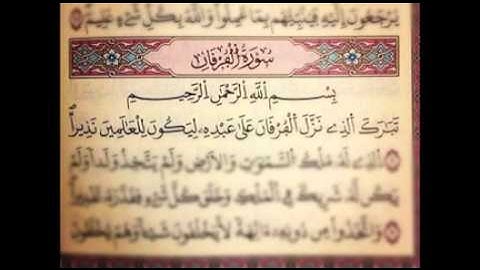 يُرْجَعُونَ إِلَيْهِ فَيُنَبِّئُهُم بِمَا عَمِلُوا وَاللَّهُ بِكُلِّ شَيْءٍ عَلِيمٌ
سُورَةُ الْفُرْقَانِ
بِسْمِ اللَّهِ الرَّحْمَٰنِ الرَّحِيمِ
تَبَارَكَ الَّذِے نَزَّلَ الْفُرْقَانَ عَلَىٰ عَبْدِهِۦ لِيَكُونَ لِلْعَالَمِينَ نَذِيراً
الَّذِے لَهُۥ مُلْكُ السَّمَٰوَٰتِ وَالْأَرْضِ وَلَمْ يَتَّخِذْ وَلَداً وَلَمْ
يَكُن لَّهُۥ شَرِيكٌ فِے الْمُلْكِ وَخَلَقَ كُلَّ شَيْءٍ فَقَدَّرَهُۥ تَقْدِيراً
وَاتَّخَذُوا مِن دُونِهِۦ ءَالِهَةً لَّا يَخْلُقُونَ شَيْئاً وَهُمْ يُخْلَقُونَ